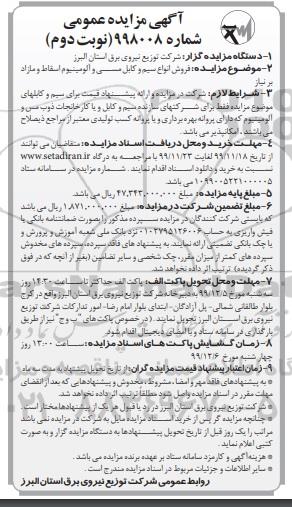 آگهی مزایده عمومی
شماره ۹۹۸۰۰۸ (نوبت دوم)
۱- دستگاه مزایده گزار: شرکت توزیع نیروی برق استان البرز
۲- موضوع مزایده: فروش انواع سیم و کابل مسی و آلومینیوم اسقاط و مازاد
بر نیاز
۳- شرایط لازم: شرکت در مزایده و ارائه پیشنهاد قیمت برای سیم و کابلهای
موضوع مزایده فقط برای شرکتهای سازنده سیم و کابل و یا کارخانجات ذوب مس و
آلومینیوم که دارای پروانه بهره برداری و یا پروانه کسب تولیدی معتبر از مراجع ذیصلاح
می باشند، امکانپذیر می باشد.
۴- مهلت خرید و محل دریافت اسناد مزایده: متقاضیان می توانند
از تاریخ ۹۹/۱۱/۱۸ لغایت ۹۹/۱۱/۲۳ با مراجعه به درگاه www.setadiran.ir
نسبت به خرید و دانلود اسناد اقدام نمایند. شماره مزایده در سامانه ستاد
۱۰۹۹۰۰۵۲۲۱۰۰۰۰۰۵ می باشد.
۵- مبلغ پایه مزایده: مبلغ ۴۷,۳۴۳,۰۰۰,۰۰۰ ریال می باشد.
۶- مبلغ تضمین شرکت در مزایده: مبلغ ۱,۸۷۱,۰۰۰,۰۰۰ ریال می باشد
که بایستی شرکت کنندگان در مزایده سپرده مذکور را بصورت ضمانتنامه بانکی یا
فیش واریزی به حساب ۰۱۰۲۷۹۵۱۲۶۰۰۶ نزد بانک ملی شعبه آموزش و پرورش و
یا چک بانکی تضمینی ارائه نمایند. به پیشنهاد های فاقد سپرده، سپرده های مخدوش
سپرده های کمتر از میزان مقرر، چک شخصی و سایر تضامین (بغیر از آنچه که در فوق
ذکر گردیده) ترتیب اثر داده نخواهد شد.
۷- مهلت و محل تحویل پاکت الف: پاکت الف حداکثر تا ساعت ۱۴:۳۰ روز
سه شنبه مورخ ۹۹/۱۲/۵ به دبیرخانه شرکت توزیع نیروی برق استان البرز واقع در کرج
بلوار طالقانی شمالی- پل آزادگان- ابتدای بلوار امام رضا- امور تدارکات شرکت توزیع
نیروی برق استان البرز تحویل نمایند. (در خصوص پاکت های "ب و ج" نیز از طریق
بارگذاری در سامانه ستاد و با امضای دیجیتال اقدام شود.
۸- زمان گشایش پاکت های اسناد مزایده: ساعت ۱۳:۰۰ روز
چهارشنبه مورخ ۹۹/۱۲/۶
۹- زمان اعتبار پیشنهاد قیمت مزایده گران: از تاریخ تحویل پیشنهاد به مدت سه ماه
● به پیشنهادهای فاقد مهر و امضا، مشروط، مخدوش و پیشنهادهایی که بعد از انقضای
مهلت مقرر در اسناد مزایده واصل شود مطلقا ترتیب اثر داده نخواهد شد.
● شرکت توزیع نیروی برق استان البرز در رد یا قبول هر یک از پیشنهادها مختار است.
● چنانچه مزایده گر پس از خرید اسناد مزایده مایل به شرکت در مزایده نمی باشد
مراتب را یک روز قبل از تاریخ تحویل پیشنهادها به دستگاه مزایده گزار و به صورت
کتبی اعلام نماید.
● هزینه آگهی و کارمزد سامانه ستاد بر عهده برنده مزایده می باشد.
● سایر اطلاعات و جزئیات مربوط در اسناد مزایده مندرج است.
روابط عمومی شرکت توزیع نیروی برق استان البرز